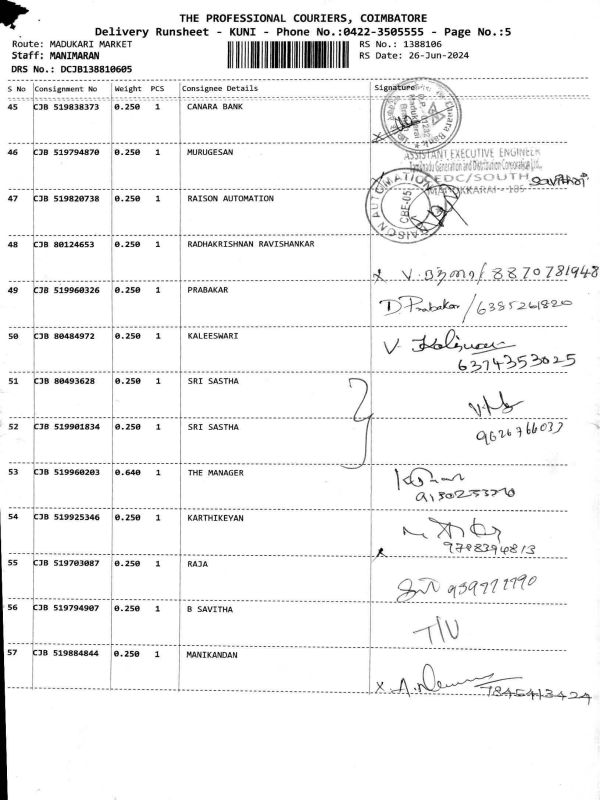 THE PROFESSIONAL COURIERS, COIMBATORE
Delivery Runsheet - KUNI - Phone No.:0422-3505555 - Page No.:5
Route: MADUKARI MARKET RS No.: 1388106
Staff: MANIMARAN RS Date: 26-Jun-2024
DRS No.: DCJB138810605
S No Consignment No Weight PCS Consignee Details Signature
45 CJB 519838373 0.250 1 CANARA BANK
46 CJB 519794870 0.250 1 MURUGESAN
ASSISTANT EXECUTIVE ENGINEER
Tamilnadu Generation and Distribution Corporation Ltd.,
EDC/SOUTH
47 CJB 519820738 0.250 1 RAISON AUTOMATION
RAISON AUTOMATION
CBE-05
48 CJB 80124653 0.250 1 RADHAKRISHNAN RAVISHANKAR
8870781948
49 CJB 519960326 0.250 1 PRABAKAR
D. Prabakar / 6385261820
50 CJB 80484972 0.250 1 KALEESWARI
6374353025
51 CJB 80493628 0.250 1 SRI SASTHA
52 CJB 519901834 0.250 1 SRI SASTHA
53 CJB 519960203 0.640 1 THE MANAGER
54 CJB 519925346 0.250 1 KARTHIKEYAN
55 CJB 519703087 0.250 1 RAJA
56 CJB 519794907 0.250 1 B SAVITHA
57 CJB 519884844 0.250 1 MANIKANDAN
7845413424